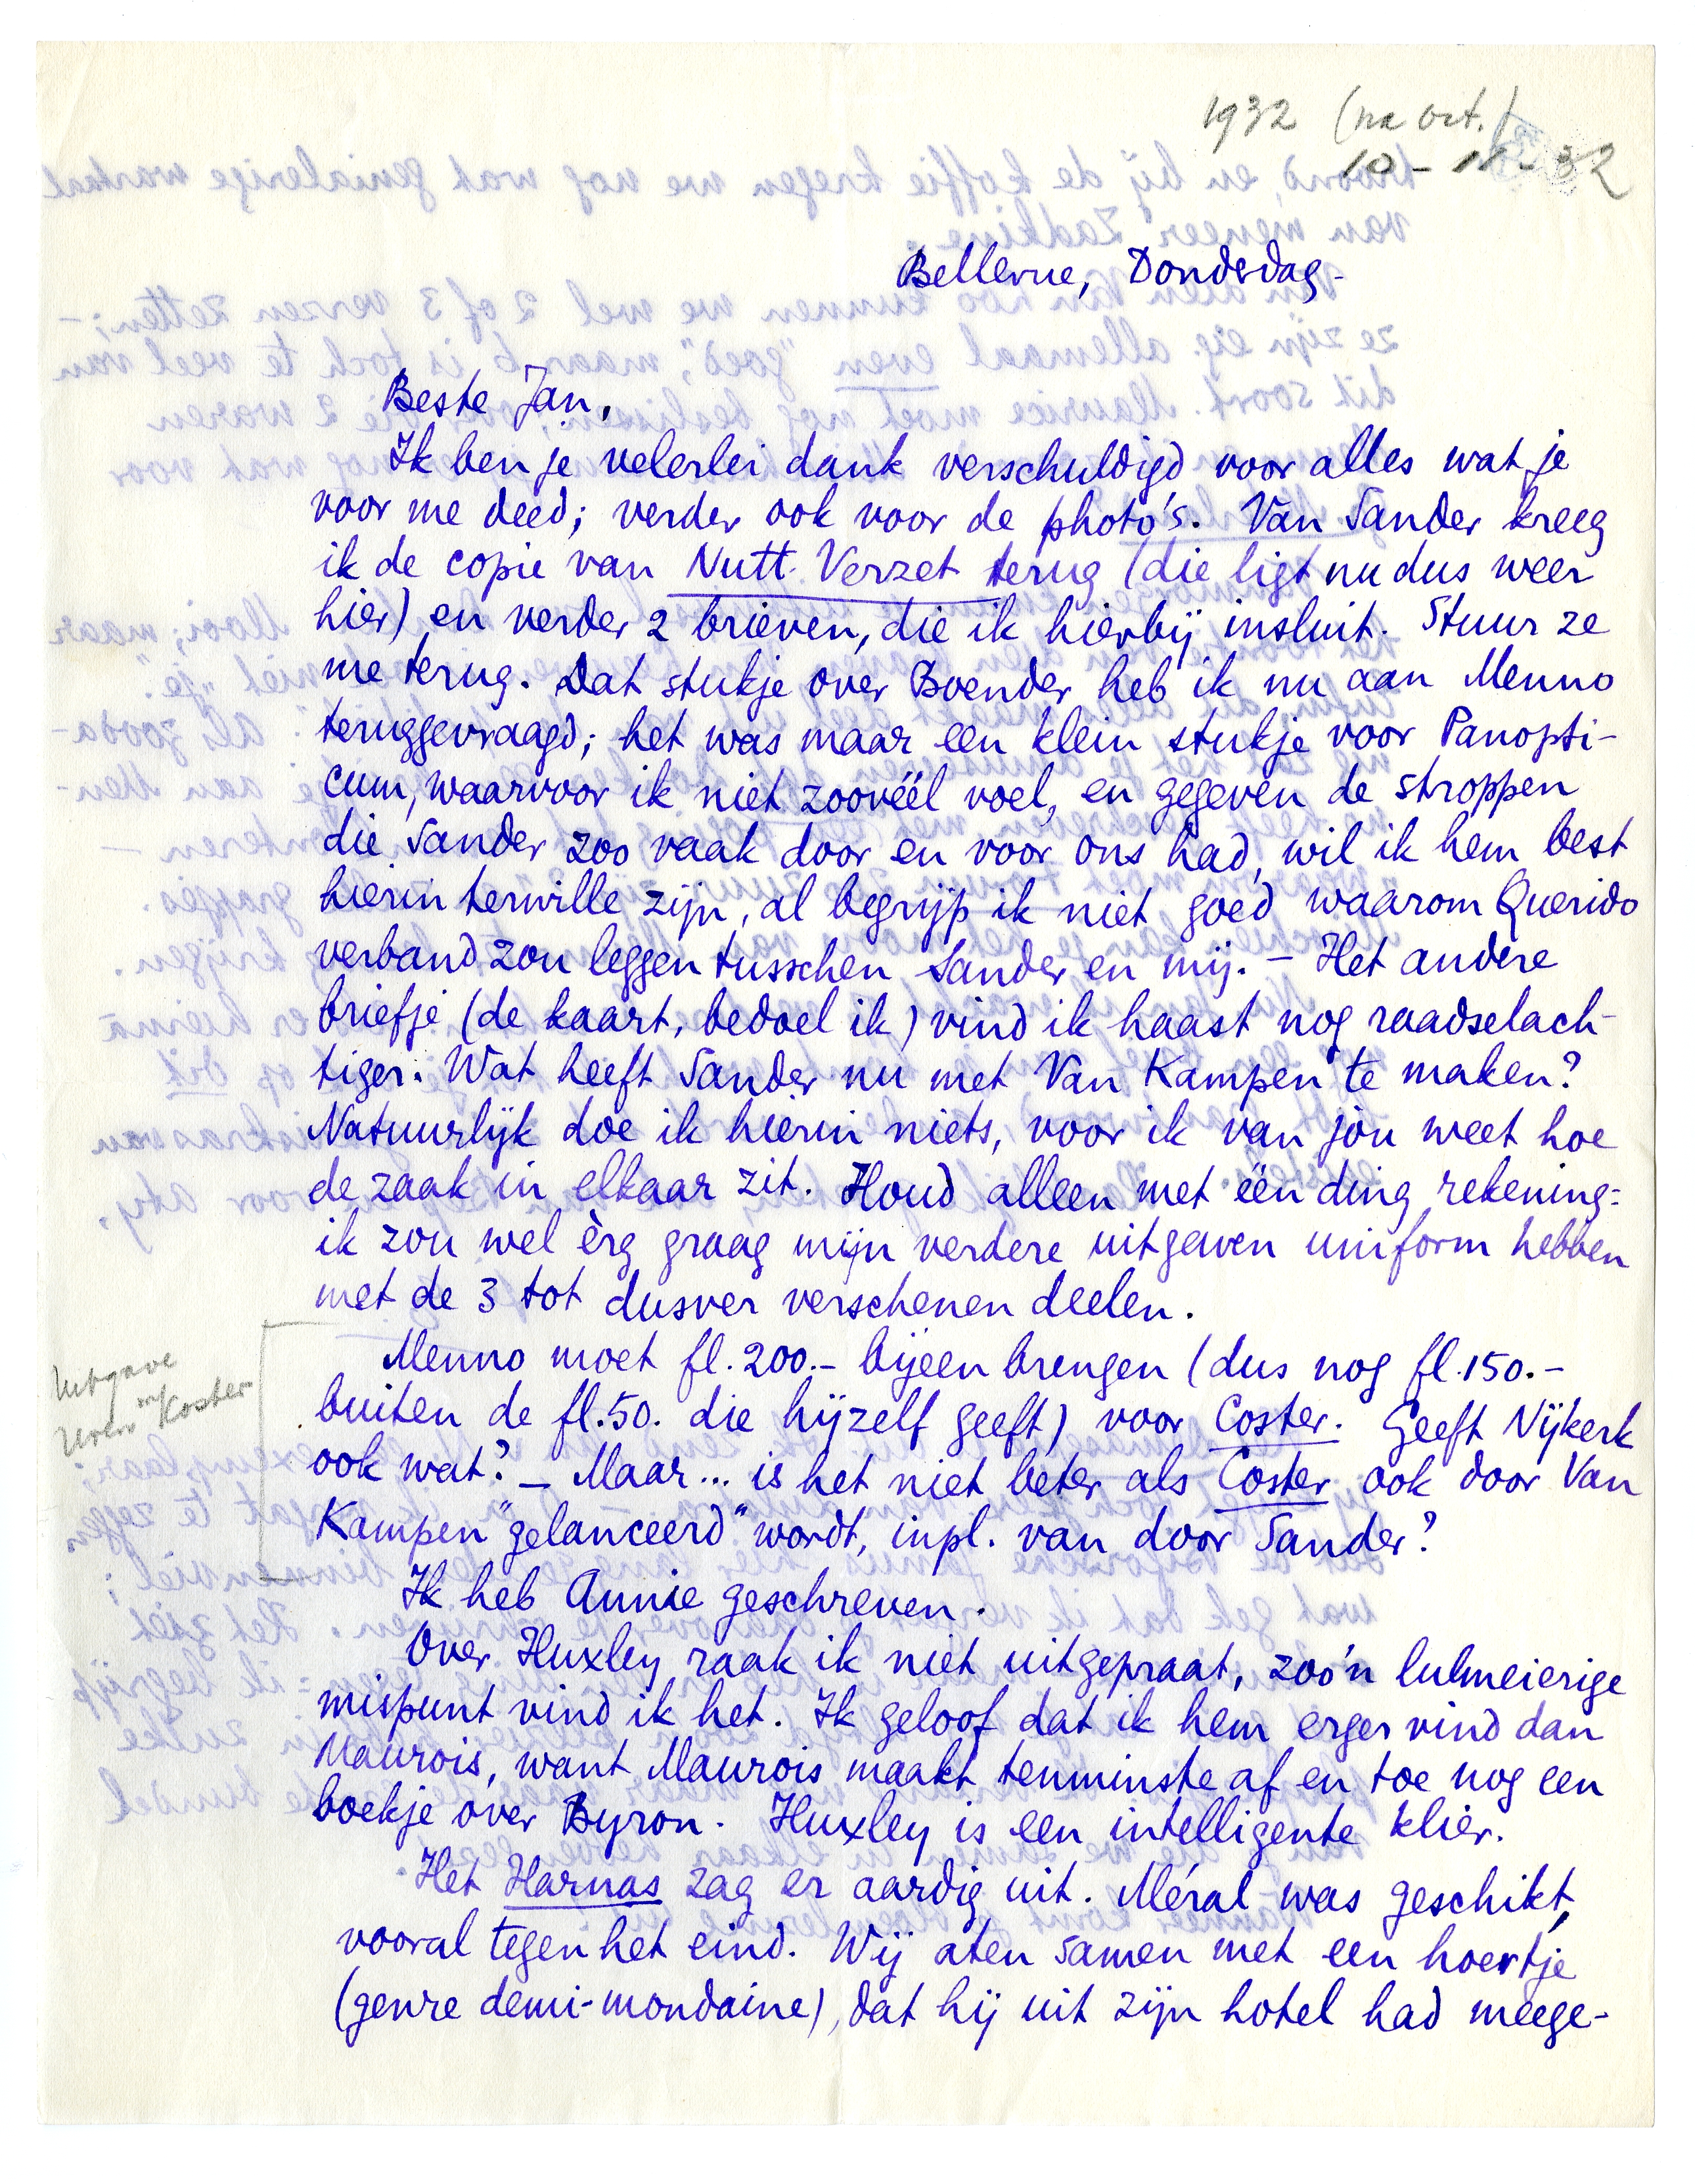 1932 (na oct.)
10-11-32
Bellevue, Donderdag-
Beste Jan,
Ik ben je velerlei dank verschuldigd voor alles wat je
voor me deed; verder ook voor de photo's. Van Sander kreeg
ik de copie van Nutt. Verzet terug (die ligt nu dus weer
hier) en verder 2 brieven, die ik hierbij insluit. Stuur ze
me terug. Dat stukje over Boender heb ik nu aan Menno
teruggevraagd; het was maar een klein stukje voor Panopti-
cum, waarvoor ik niet zoovéél voel, en gegeven de stroppen
die Sander zoo vaak door en voor ons had, wil ik hem best
hierin terwille zijn, al begrijp ik niet goed waarom Querido
verband zou leggen tusschen Sander en mij. - Het andere
briefje (de kaart, bedoel ik) vind ik haast nog raadselach-
tiger: Wat heeft Sander nu met Van Kampen te maken?
Natuurlijk doe ik hierin niets, voor ik van jòu weet hoe
de zaak in elkaar zit. Houd alleen met één ding rekening:
ik zou wel èrg graag mijn verdere uitgaven uniform hebben
met de 3 tot dusver verschenen deelen.
Menno moet fl. 200.- bijeenbrengen (dus nog fl. 150.-
buiten de fl. 50. die hijzelf geeft) voor Coster. Geeft Nijkerk
ook wat? - Maar... is het niet beter als Coster ook door Van
Kampen "gelanceerd" wordt, inpl. van door Sander?
Uitgave
Uren m/ Koster
Ik heb Annie geschreven.
Over Huxley raak ik niet uitgepraat, zoo'n lulmeierige
mispunt vind ik het. Ik geloof dat ik hem erger vind dan
Maurois, want Maurois maakt tenminste af en toe nog een
boekje over Byron. Huxley is een intelligente klier.
Het Harnas zag er aardig uit. Méral was geschikt,
vooral tegen het eind. Wij aten samen met een hoertje
(genre demi-mondaine), dat hij uit zijn hotel had meege-